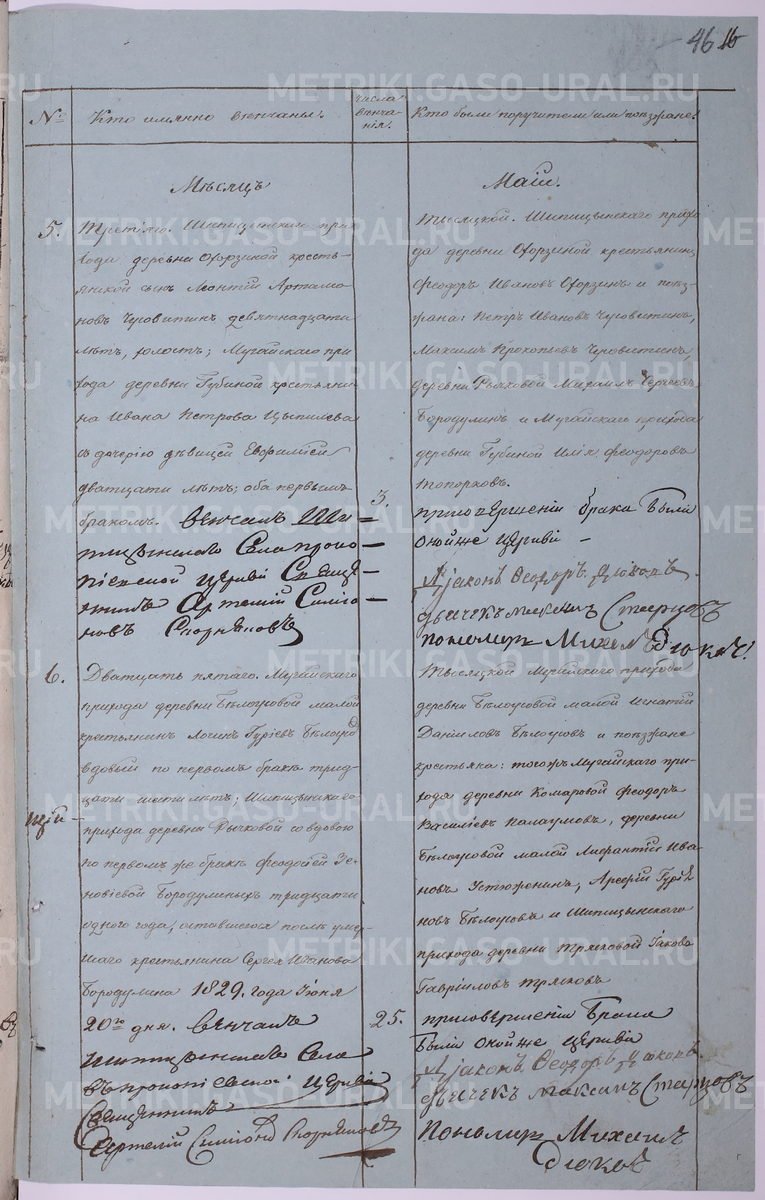 46
№
Кто имянно венчаны.
числа
венча-
нія.
Кто были поручители или поезжане.
Мѣсяцъ
Маій.
5.
Третіяго. Шипицынскаго при
хода деревни Охорзиной кресть-
янской сынъ Леонтій Артамо
новъ Чусовитинъ, девятнадцати
лѣтъ, холостъ; Мугайскаго при
хода деревни Губиной крестьяни
на Ивана Петрова Цыпилева
съ дочерію дѣвицей Евфиміей
дватцати лѣтъ; оба первымъ
бракомъ. Венчалъ Ши-
пицынскаго Села проко-
піевской церкви Свяще-
нникъ Артемій Симіо-
новъ
3.
Тысяцкой. Шипицынскаго прихо
да деревни Охорзиной крестьянинъ
Феодоръ Ивановъ Охорзинъ и поез-
жана: Петръ Ивановъ Чусовитинъ,
Максимъ Прокопьевъ Чусовитинъ
деревни Рычковой Михаилъ Сергеевъ
Бородулинъ и Мугайскаго прихода
деревни Губиной Илія Феодоровъ
Топорковъ.
при совершеніи брака были
оной же церкви -
Діаконъ Феодоръ Дюковъ
дьячекъ Максимъ Старцовъ
пономарь Михаилъ Дюковъ
6.
Дватцать пятаго. Мугайскаго
прихода деревни Бѣлоусовой малой
крестьянинъ Логинъ Гуріевъ Бѣлоусовъ
вдовый по первомъ бракѣ трид-
цати шести лѣтъ; Шипицынскаго
прихода деревни Рычковой со вдовою
по первомъ же бракѣ Феодосіей Зе-
новіевой Бородулиныхъ тридцати
одного года, оставшегося послѣ умер-
шаго крестьянина Сергея Иванова
Бородулина 1829. года Іюня
20го дня. Венчалъ
Шипицынскаго Села
прокопіевской церкви
Священникъ
Артемій Симіоновъ
25.
Тысяцкой Мугайскаго прихода
деревни Бѣлоусовой малой Игнатій
Даниловъ Бѣлоусовъ и поезжане
крестьяна: тогожъ Мугайскаго при-
хода деревни Комаровой Феодоръ
Василіевъ Палаумовъ, деревни
Бѣлоусовой малой Лифантій Ива-
новъ Устюженинъ, Арсеній Гурія
новъ Бѣлоусовъ и Шипицынскаго
прихода деревни Пряжовой Іаковъ
Гавриловъ Пряжовъ
при совершеніи Брака
были оной же церкви
Діаконъ Феодоръ Дюковъ
дьячекъ Максимъ Старцовъ
Пономарь Михаилъ
Дюковъ
METRIKI.GASO-URAL.RU